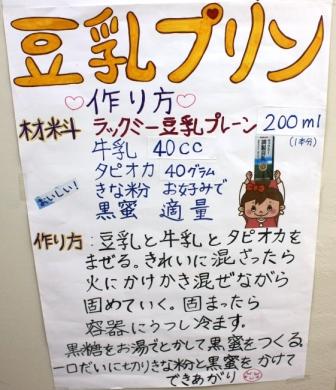 豆乳プリン
♡作り方♡
材料 ラックミー豆乳プレーン 200ml
(1本分)
牛乳 40cc
タピオカ 40グラム
きな粉 お好みで
おいしい!
黒蜜 適量
作り方:豆乳と牛乳とタピオカを
まぜる。きれいに混ざったら
火にかけかき混ぜながら
固めていく。固まったら
容器にうつし冷ます。
黒糖をお湯でとかして黒蜜をつくる。
一口だいに切りきな粉と黒蜜をかけて
できあがり